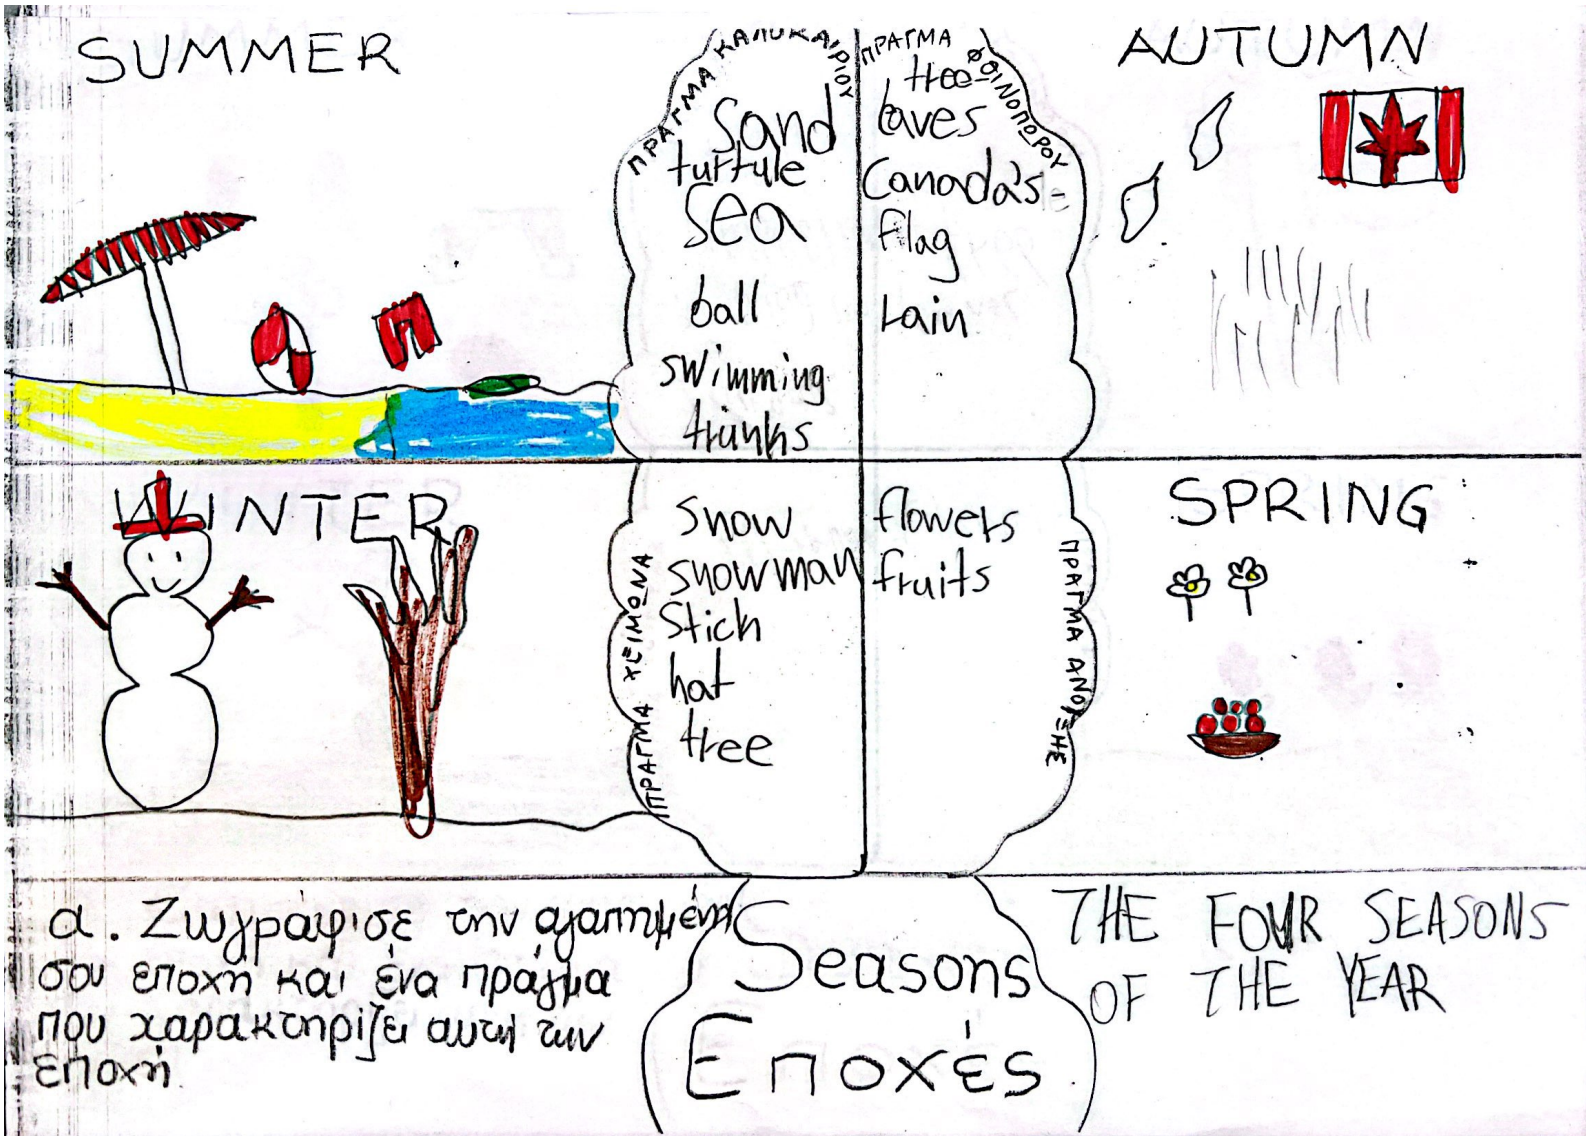 SUMMER
ΠΡΑΓΜΑ ΚΑΛΟΚΑΙΡΙΟΥ
sand
turtule
sea
ball
swimming
trunks
ΠΡΑΓΜΑ ΦΘΙΝΟΠΩΡΟΥ
tree
leaves
Canada's
flag
rain
AUTUMN
WINTER
ΠΡΑΓΜΑ ΧΕΙΜΩΝΑ
snow
snowman
Stick
hat
tree
flowers
fruits
ΠΡΑΓΜΑ ΑΝΟΙΞΗΣ
SPRING
α. Ζωγράφισε την αγαπημένη
σου εποχή και ένα πράγμα
που χαρακτηρίζει αυτή την
εποχή.
Seasons
Εποχές
THE FOUR SEASONS
OF THE YEAR